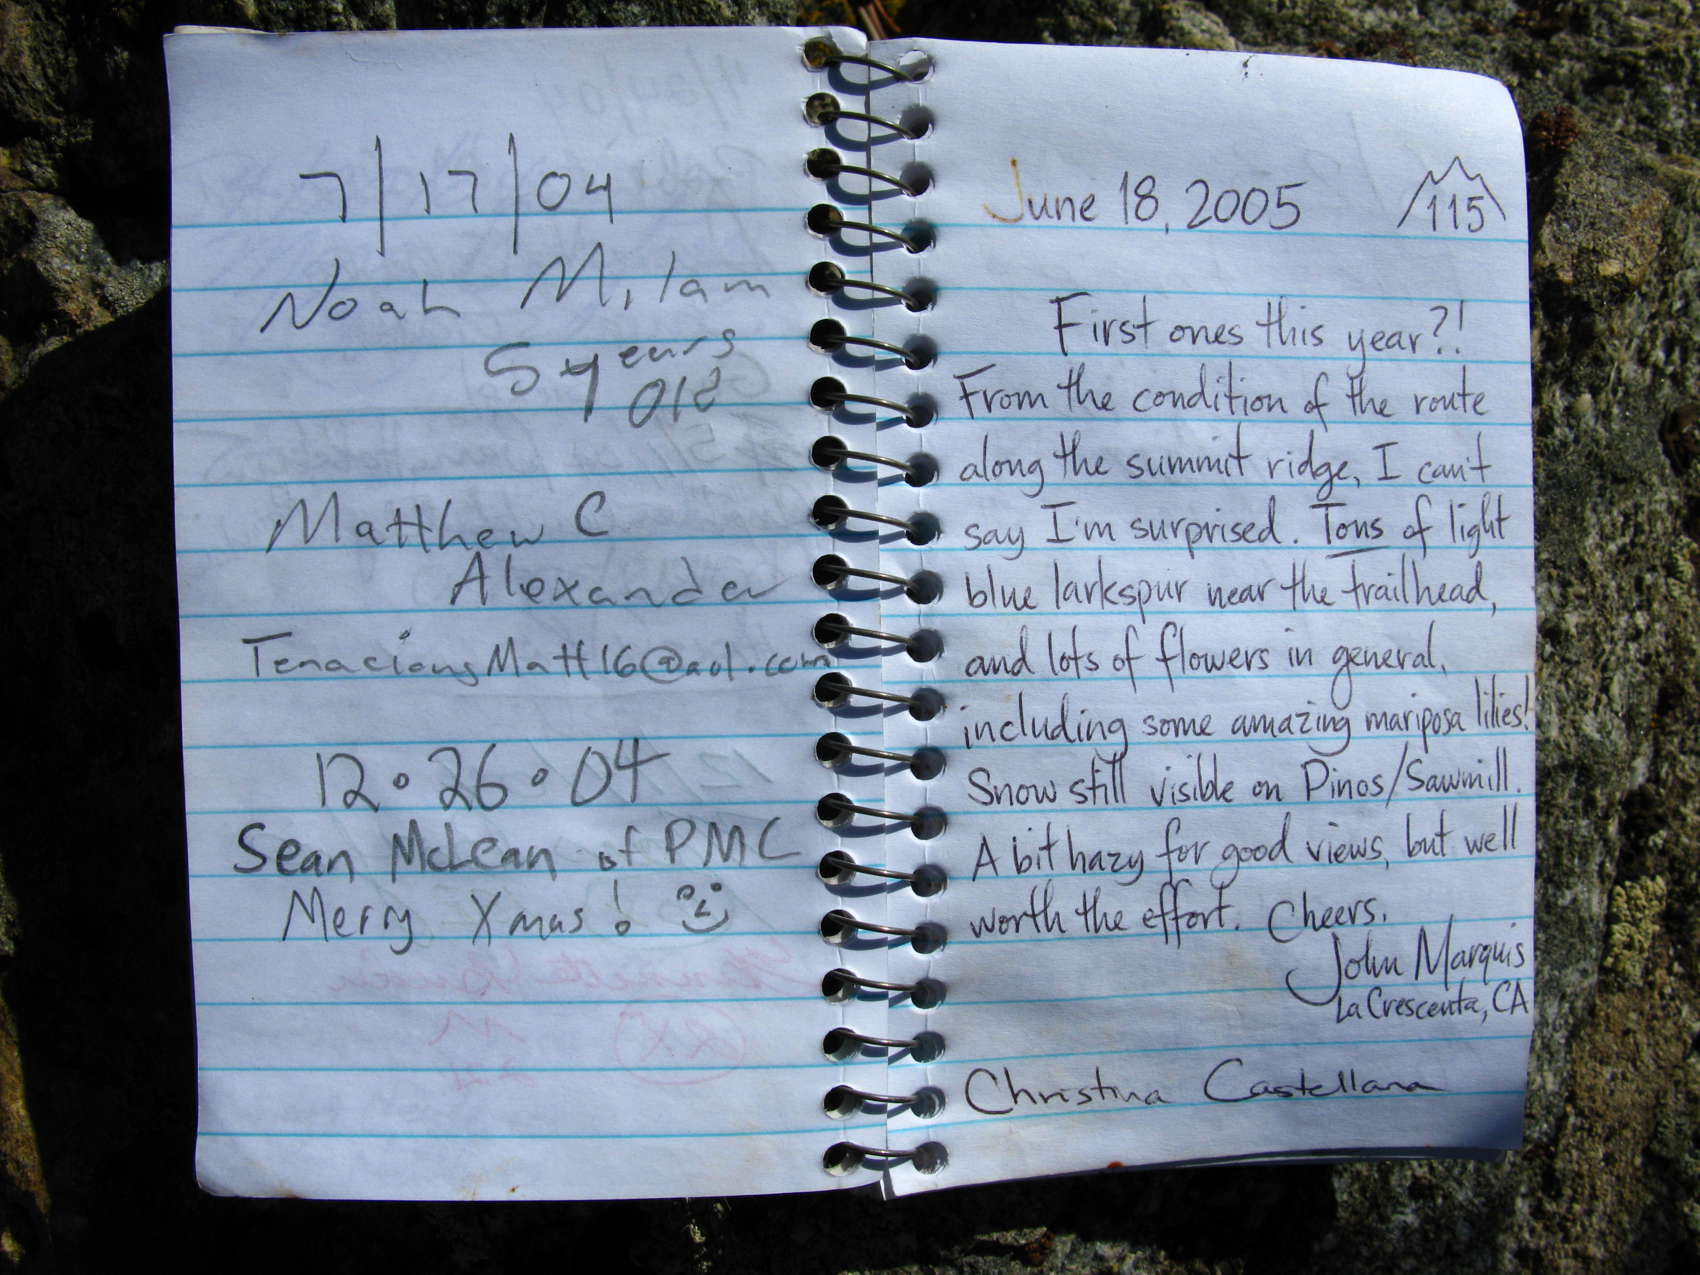 7/17/04
Noah Milam
5 years
old
Matthew C
Alexander
TenaciousMatt16@aol.com
12•26•04
Sean McLean of PMC
Merry Xmas!
June 18, 2005
115
First ones this year?!
From the condition of the route
along the summit ridge, I can't
say I'm surprised. Tons of light
blue larkspur near the trailhead,
and lots of flowers in general,
including some amazing mariposa lilies!
Snow still visible on Pinos/Sawmill.
A bit hazy for good views, but well
worth the effort. Cheers,
John Marquis
La Crescenta, CA
Christina Castellana